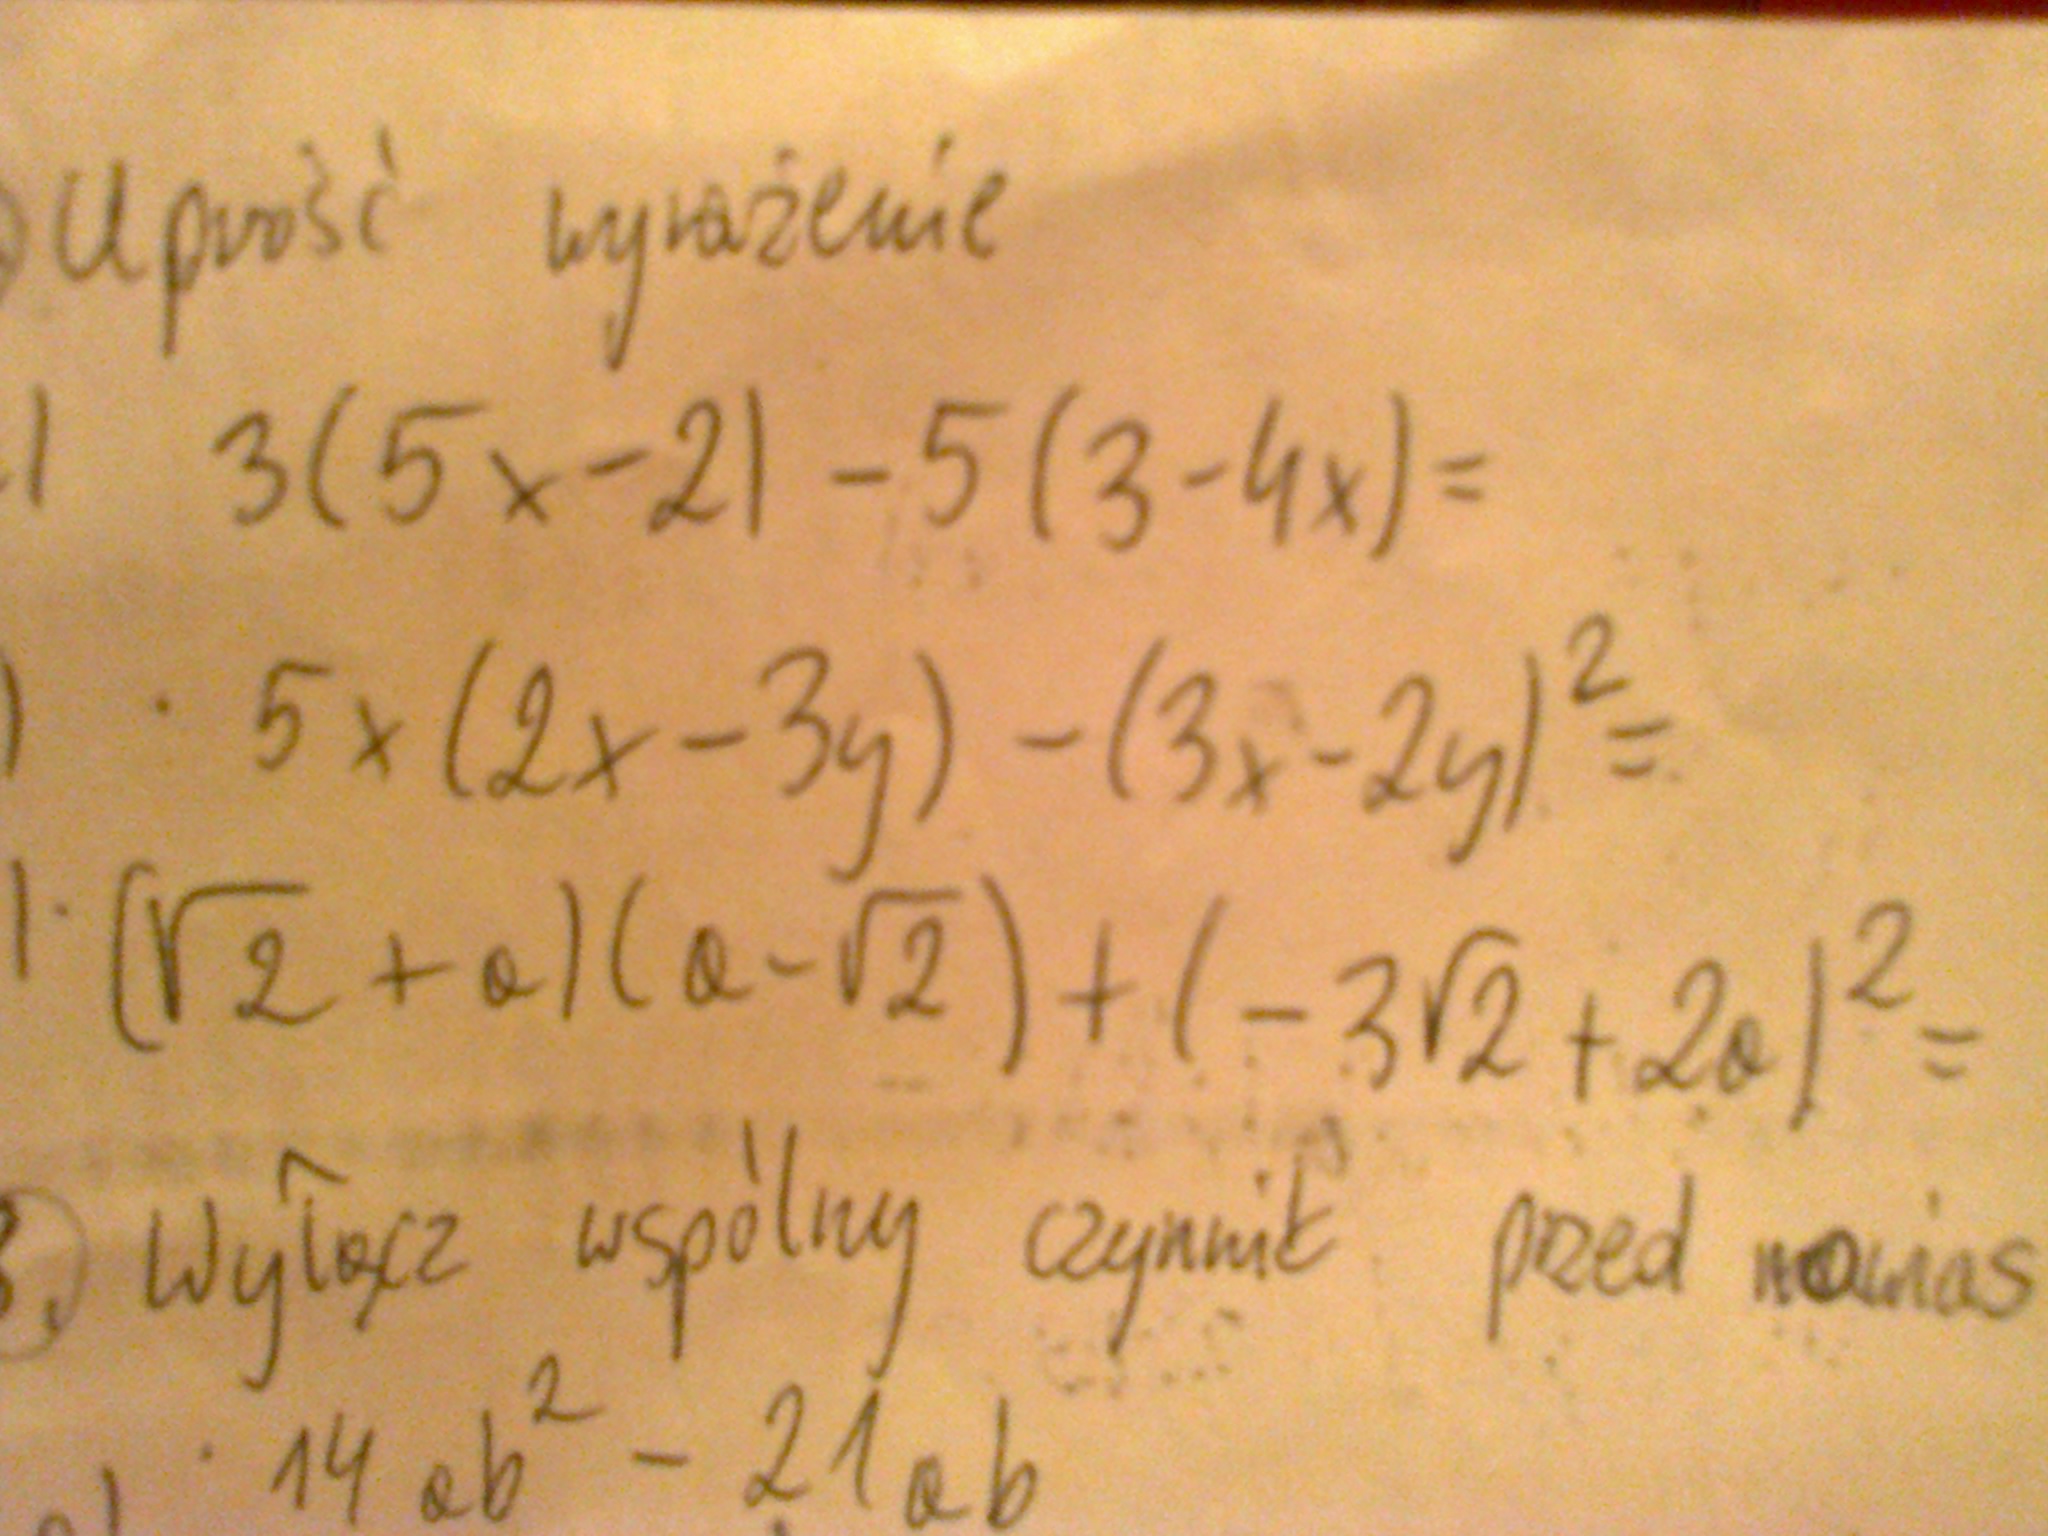 Uprość wyrażenie
3(5x-2) - 5(3-4x)=
) · 5x(2x-3y) - (3x-2y)²=
(√2+a)(a-√2) + (-3√2+2a)²=
3. Wyłącz wspólny czynnik przed nawias
a) · 14ab² - 21ab